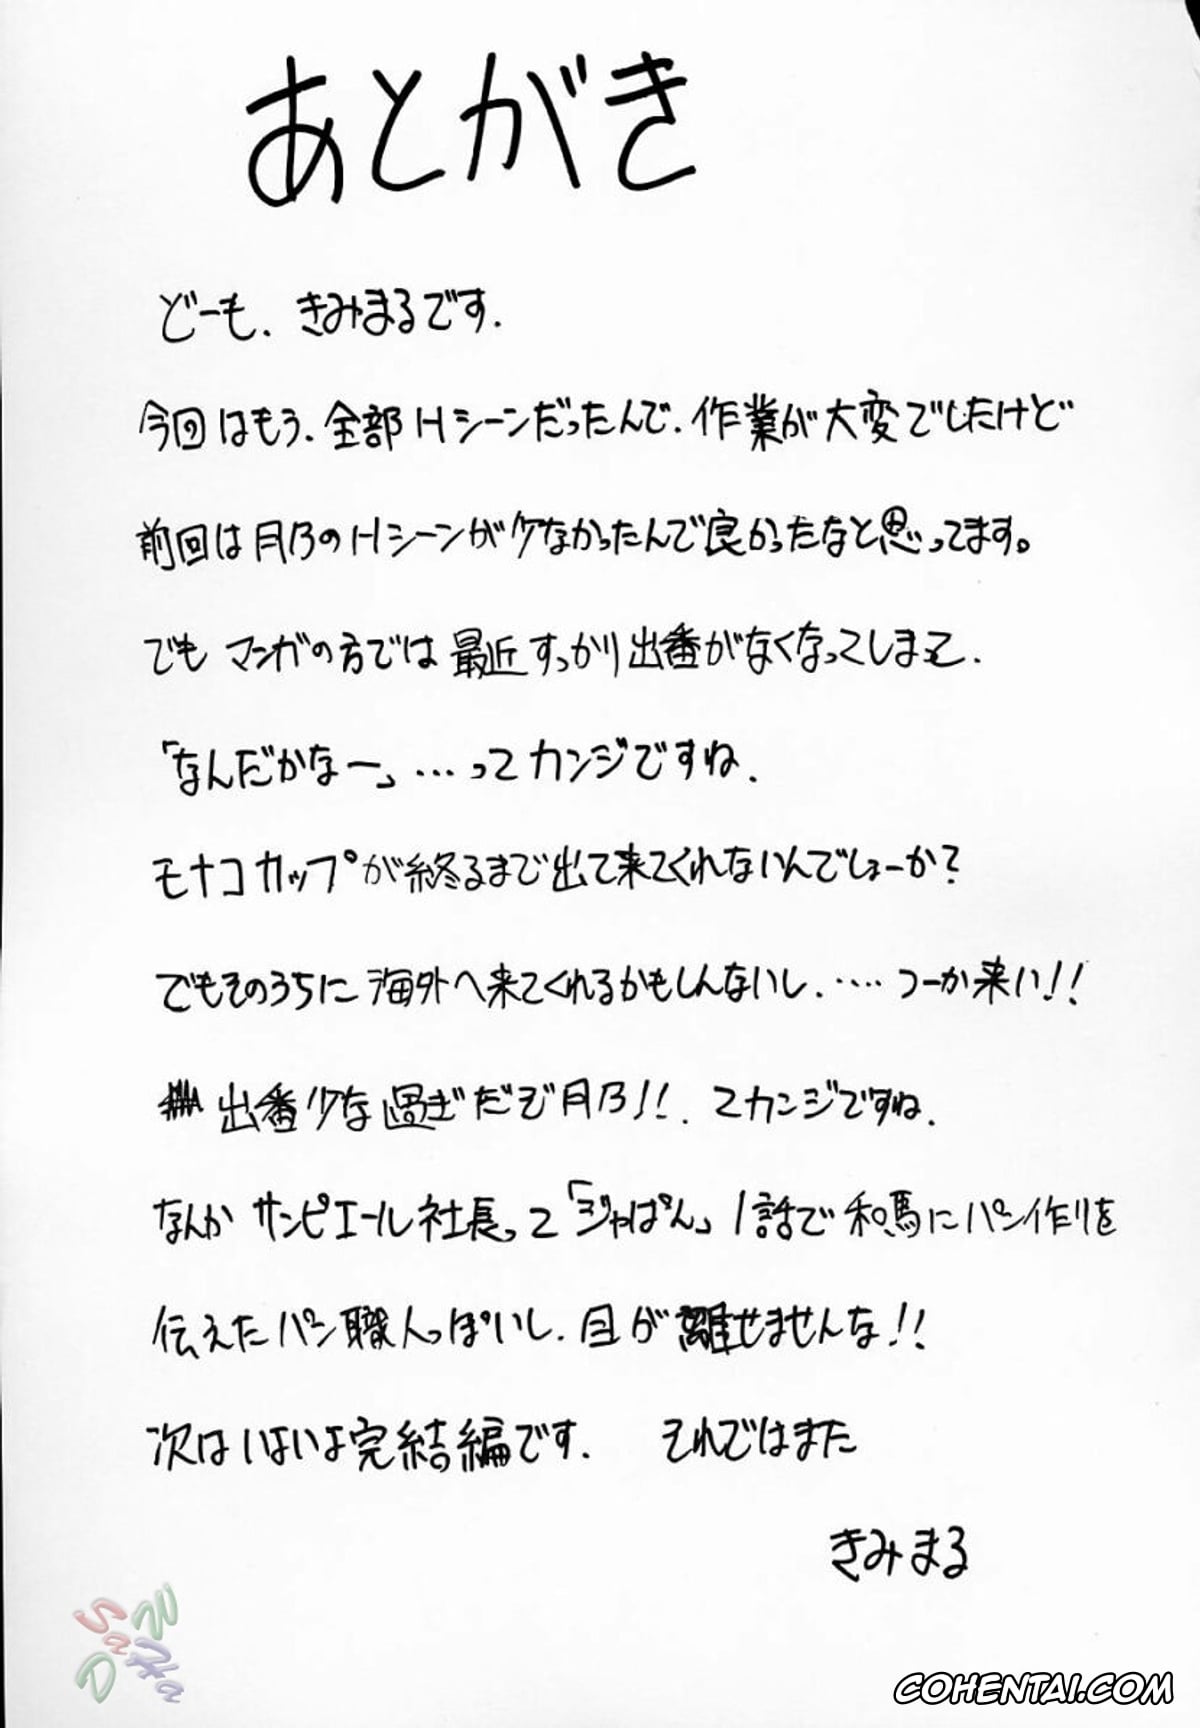 あとがき
どーも、きみまるです.
今回はもう、全部Hシーンだったんで、作業が大変でしたけど
前回は月乃のHシーンが少なかったんで良かったなと思ってます。
でもマンガの方では最近すっかり出番がなくなってしまって、
「なんだかなー」…ってカンジですね.
モナコカップが終るまで出て来てくれないんでしょーか?
でもそのうちに海外へ来てくれるかもしんないし、‥‥つーか来い!!
出番少な過ぎだぞ月乃!!. てカンジですね.
なんかサンピエール社長って「ジャぱん」1話で和馬にパン作りを
伝えたパン職人っぽいし、目が離せませんな!!
次はいよいよ完結編です. それではまた
きみまる
SaHa
DaWN
COHENTAI.COM